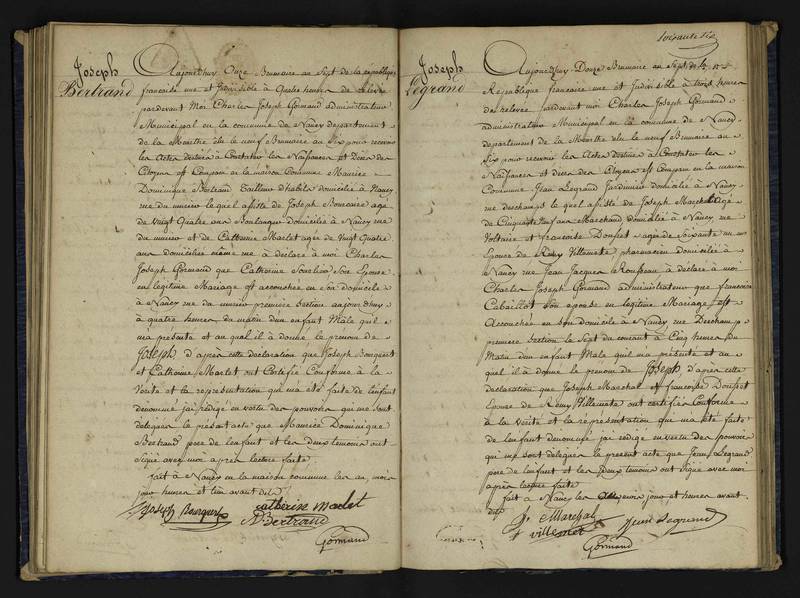 Joseph
Bertrand
Aujourd'huy Onze Brumaire an Sept de la république
francaise une et Indivisible à Quatre heures de relevée
pardevant Moi Charles Joseph Gormand administrateur
Municipal en la commune de Nancy departement
de la Meurthe élu le neuf Brumaire an Six pour recevoir
les Actes destinés à Constater les Naissances et Deces des
Citoyens est Comparu en la maison Commune Maurice
Dominique Bertrand tailleur d'habits domicilié à Nancy
rue du le quel assisté de Joseph agé
de Vingt Quatre ans Boulanger domicilié à Nancy rue
du et de Catherine Marlet agée de Vingt Quatre
ans domiciliée même rue a déclaré à moi Charles
Joseph Gormand que Catherine son Epouse
en legitime Mariage est accouchée en son domicile
à Nancy rue du premiere Section aujourd'huy
à quatre heures du matin d'un enfant Mâle qu'il
m'a présenté et au quel il a donné le prenom de
Joseph d'après cette déclaration que Joseph Bourguet
et Catherine Marlet ont Certifié Conforme à la
Verité et la représentation qui m'a été faite de l'enfant
denommé j'ai rédigé en vertu des pouvoirs qui me sont
delegués le présent acte que Maurice Dominique
Bertrand pere de l'enfant et les deux temoins ont
Signé avec moi après lecture faite
fait à Nancy en la maison commune les an mois
jour heures et lieu avant dits
Joseph Catherine Marlet
Bertrand
Gormand
Soixante Six
Joseph
Legrand
Aujourd'huy Douze Brumaire an Sept de la
République francaise une et Indivisible à trois heures
de relevée pardevant moi Charles Joseph Gormand
administrateur Municipal en la commune de Nancy
departement de la Meurthe élu le neuf Brumaire an
Six pour recevoir les Actes destinés à Constater les
Naissances et deces des Citoyens est Comparu en la maison
Commune Jean Legrand Jardinier domicilié à Nancy
rue le quel assisté de Joseph Marchal agé
de Cinquante ans Marchand domicilié à Nancy rue
Voltaire et francoise Dousset agée de Soixante un
Epouse de Remy Villemette pharmacien domiciliée à
Nancy rue Jean Jacques Rousseau a déclaré à moi
Charles Joseph Gormand administrateur que francoise
Cabaillot son épouse en legitime Mariage est
Accouchée en son domicile à Nancy rue
premiere Section le Sept du courant à Cinq heures du
Matin d'un enfant Male qu'il m'a présenté et au
quel il à donné le prenom de Joseph d'après cette
déclaration que Joseph Marchal et francoise Dousset
Epouse de Remy Villemette ont certifiés Conforme
à la verité et la représentation qui m'a été faite
de l'enfant denommé j'ai rédigé en vertu des pouvoirs
qui me sont delegués le présent acte que Jean Legrand
pere de l'enfant et les deux temoins ont signé avec moi
après lecture faite
fait à Nancy les an mois jour et heures avant
dits
Jh Marchal
villemet Jean Legrand
Gormand